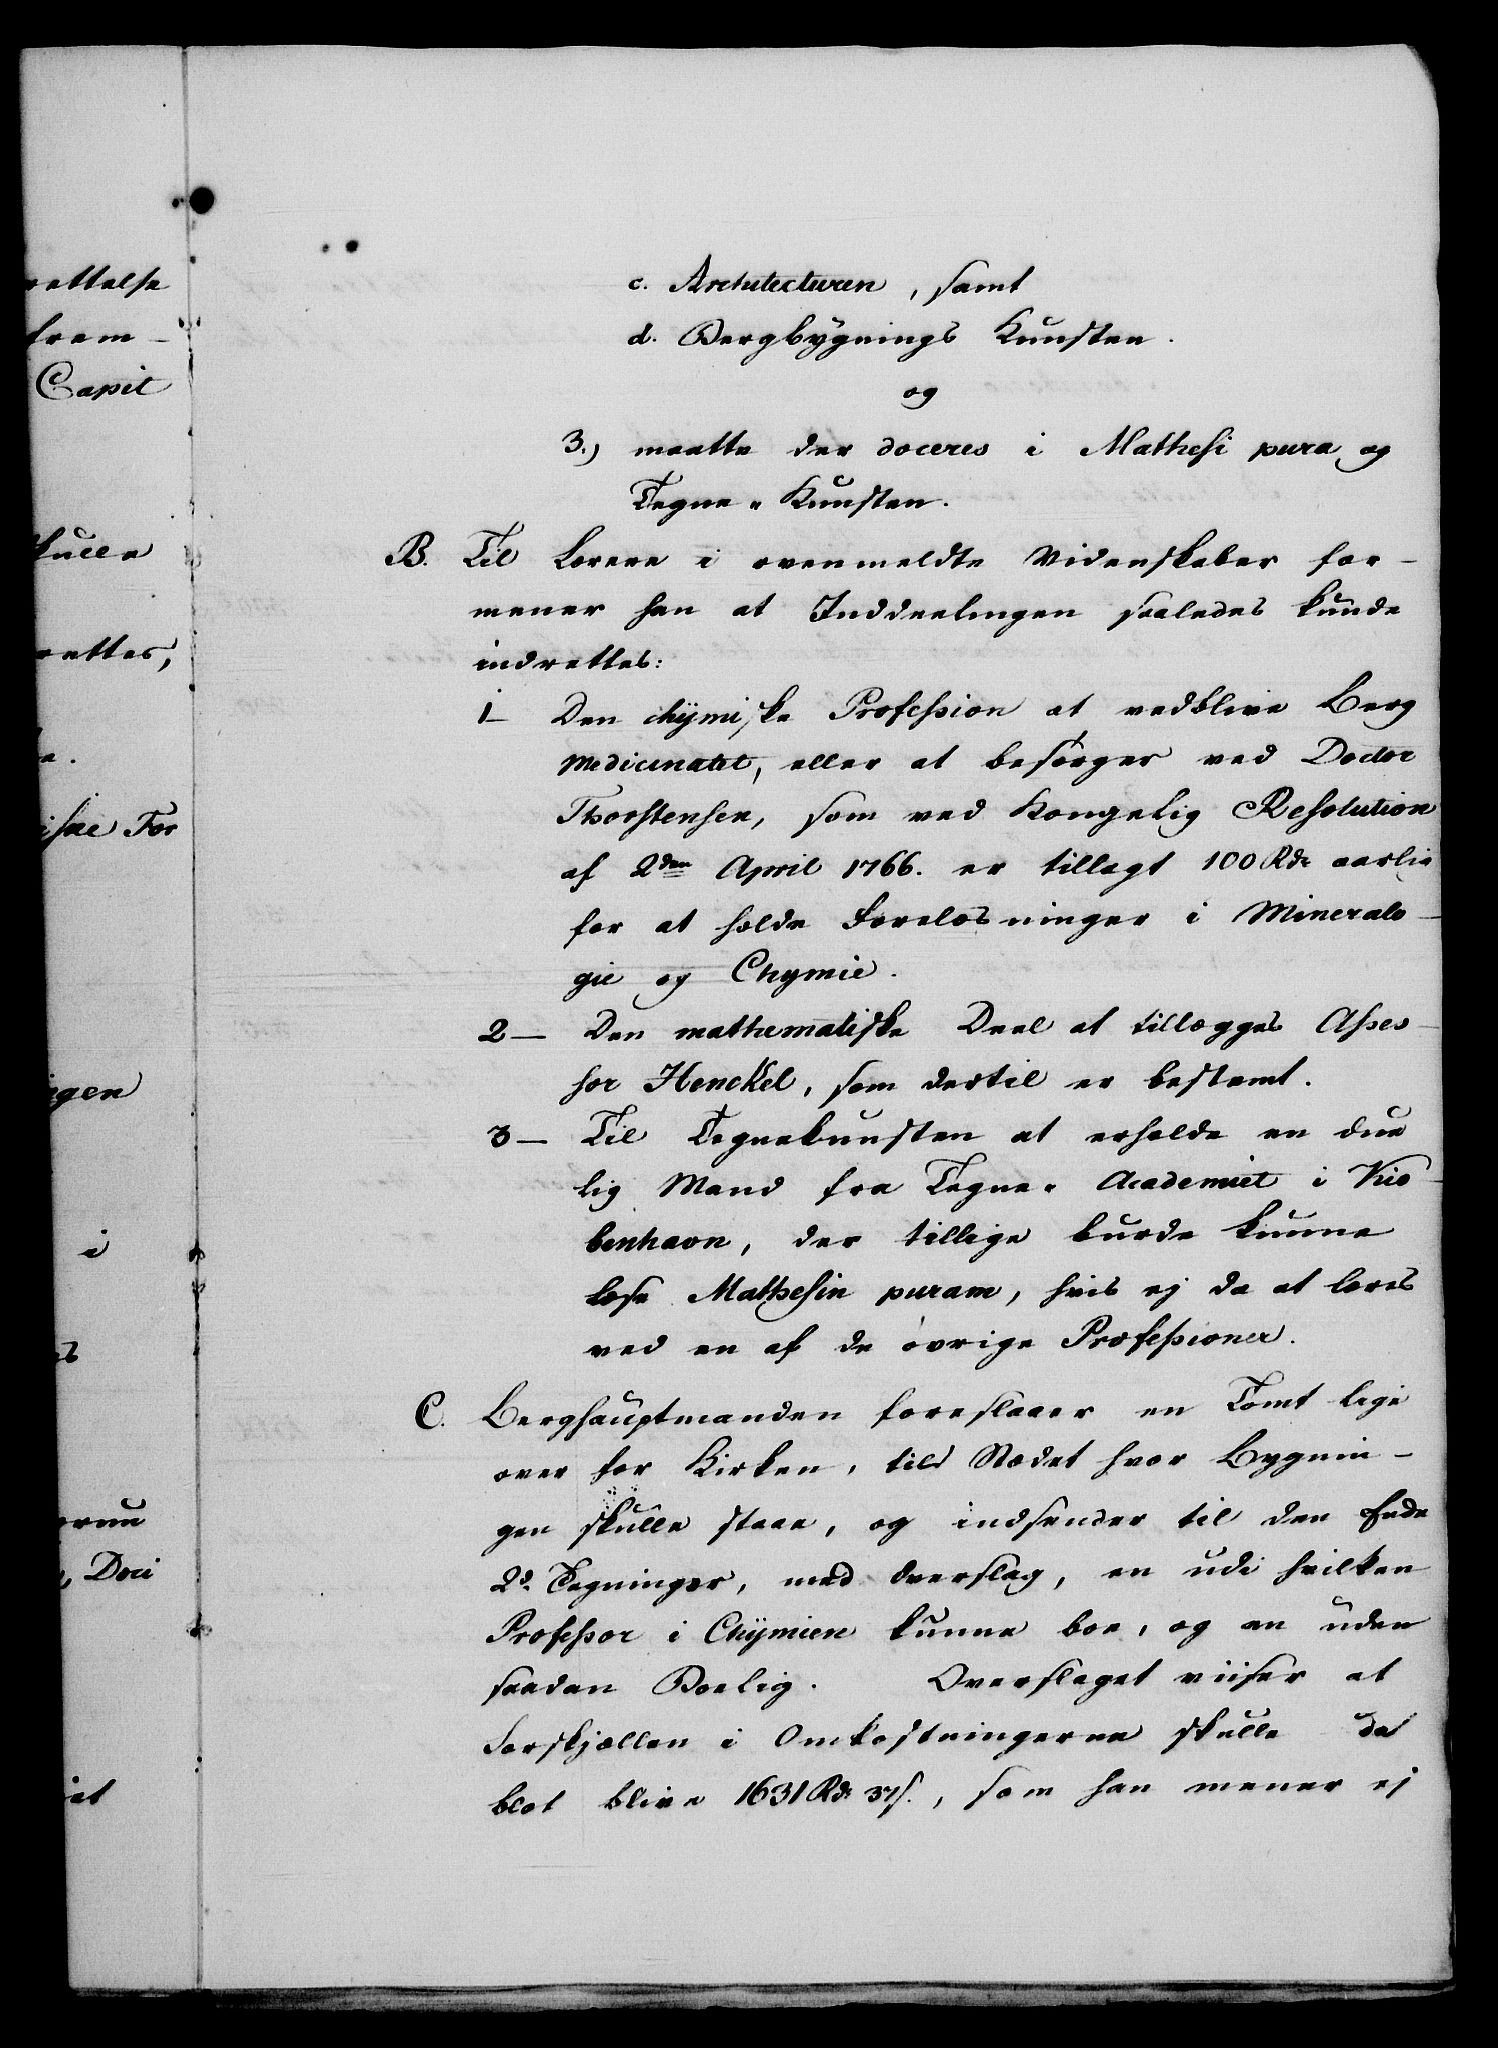 rettelse
frem-
Capit
kulle
rettes,
e.
iske For
igen
i
es
orum
, Doci
et
c. Architecturen, samt
d. Bergbygnings Kunsten.
og
3.) maatte der doceres i Mathesi pura og
Tegne-Kunsten.
B. Til Lærere i ovenmeldte Videnskaber for-
mener han at Inddeelingen saaledes kunde
indrettes:
1- Den chÿmiske Profession at vedblive Berg
Medicinatet, eller at besörges ved Doctor
Thorstensen, som ved Kongelig Resolution
af 2den April 1766. er tillagt 100 Rdr aarlig
for at holde Forelæsninger i Mineralo-
gie og Chymie.
2- Den mathematiske Deel at tillægges Asses-
sor Henckel, som dertil er bestemt.
3- Til Tegnekunsten at erholde en due
lig Mand fra Tegne-Academiet i Kiö-
benhavn, der tillige burde kunne
læse Mathesin puram, hvis ej da at læres
ved en af de övrige Professioner.
C. Berghauptmanden foreslaaer en Tomt lige
over for Kirken, til Stædet hvor Bygnin-
gen skulle staae, og indsender til den Ende
2de Tegninger, med Overslag, en udi hvilken
Professor i Chÿmien kunne boe, og en uden
saadan Boelig. Overslaget viiser at
Forskjællen i Omkostningerne skulle da
blot blive 1631 Rdr 37 s., som han mener ej